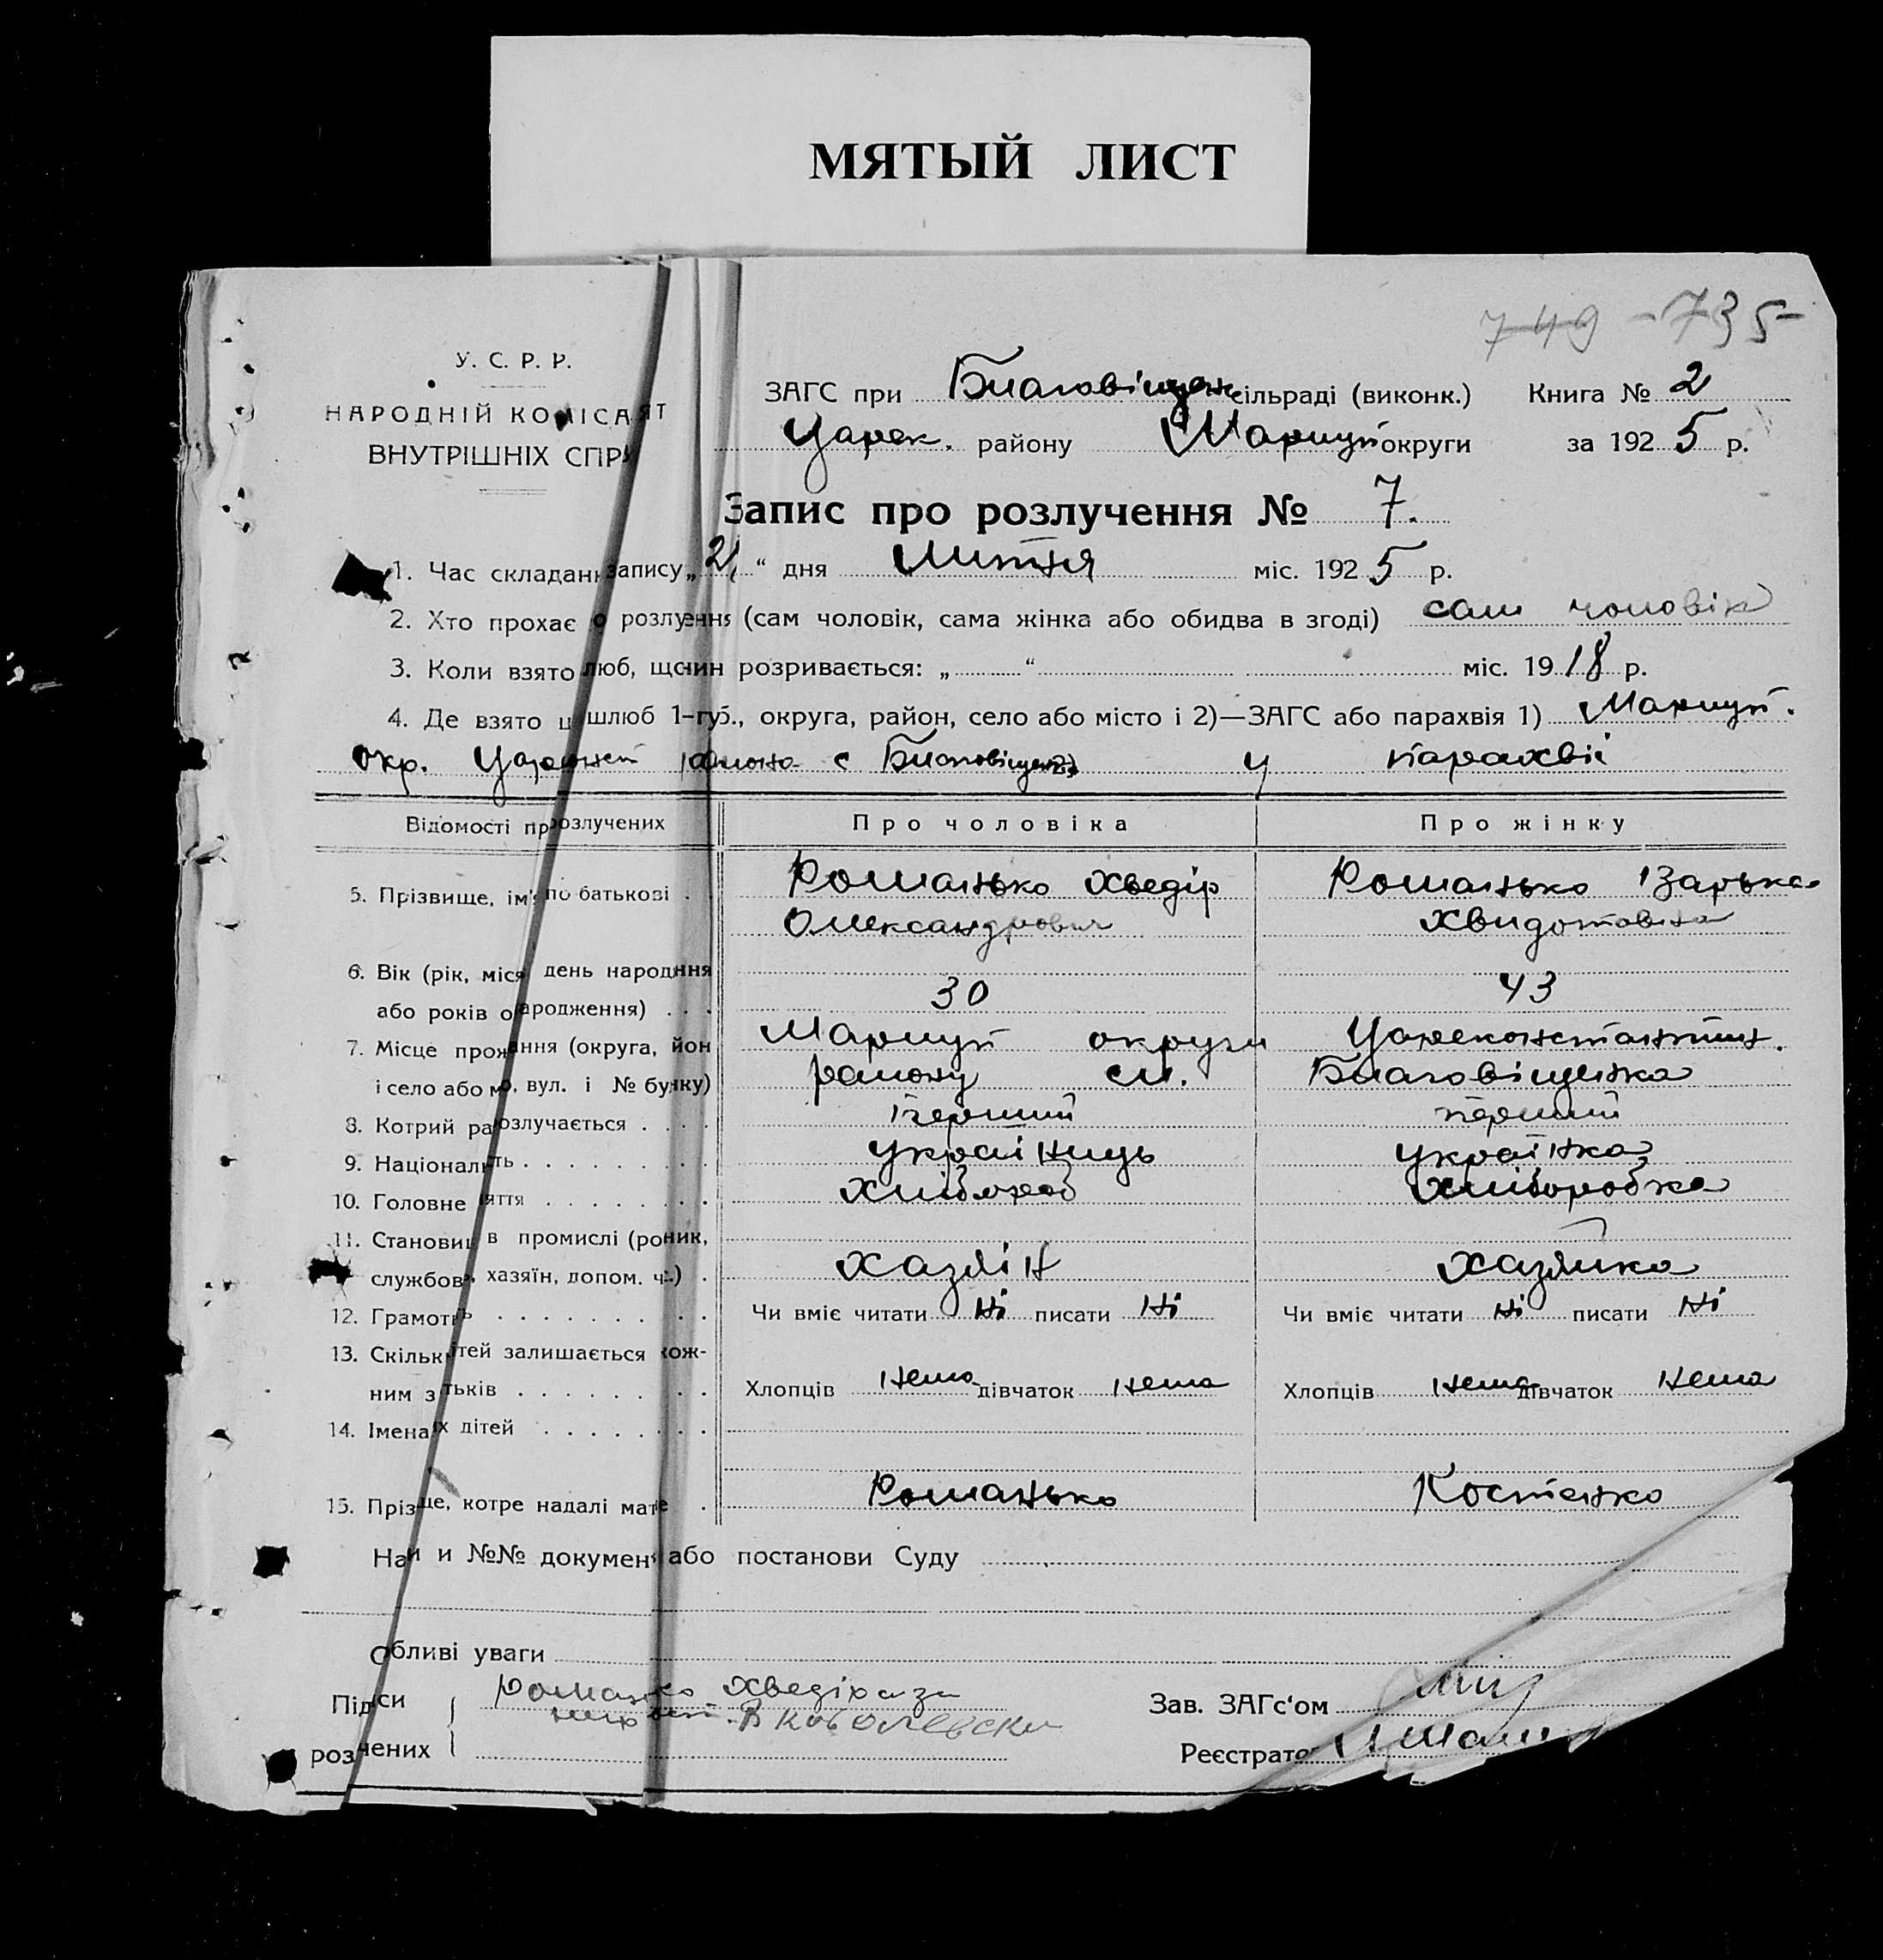 МЯТЫЙ ЛИСТ
749 - 735
У. С. Р. Р.
НАРОДНІЙ КОМІСАРІЯТ
ВНУТРІШНІХ СПР
ЗАГС при Благовіщен сільраді (виконк.) Книга № 2
Царек. району Мариуп округи за 1925 р.
Запис про розлучення № 7.
1. Час складан запису „2 “ дня Литня міс. 1925 р.
2. Хто прохає о розлу ення (сам чоловік, сама жінка або обидва в згоді) сам чоловік
3. Коли взято люб, що ин розривається: „ “ міс. 1918 р.
4. Де взято ш шлюб 1-губ., округа, район, село або місто і 2)—ЗАГС або парахвія 1) Мариуп.
окр. района с Благовіщен 2) у парахвіі
Відомості пр розлучених Про чоловіка Про жінку
5. Прізвище, ім'я по батькові . Романько Хведір Романько
Олександрович Хвидотовна
6. Вік (рік, міся день народ ння
або років о ародження) . . . 30 43
7. Місце прож ання (округа, йон Мариуп округи Цареконстантин.
і село або м , вул. і № бу нку) району см. Благовіщенка
8. Котрий ра озлучається . . . . перший перший
9. Націонал ть . . . . . . . . . украінець украінка
10. Головне яття . . . . . . . . Хлібороб хліборобка
11. Станови в промислі (ро ник,
службов , хазяїн, допом. ч .) . хазяін хазяйка
12. Грамот ь . . . . . . . . . Чи вміє читати ні писати ні Чи вміє читати ні писати ні
13. Скільк ітей залишається кож-
ним з тьків . . . . . . . . Хлопців нема дівчаток нема Хлопців нема дівчаток нема
14. Імена х дітей . . . . . . .
15. Пріз ще, котре надалі мате . Романько Костенко
На и и №№ докумен або постанови Суду
О бливі уваги
Під си Романько Хведір а за
роз чених
Зав. ЗАГс'ом
Реєстрато